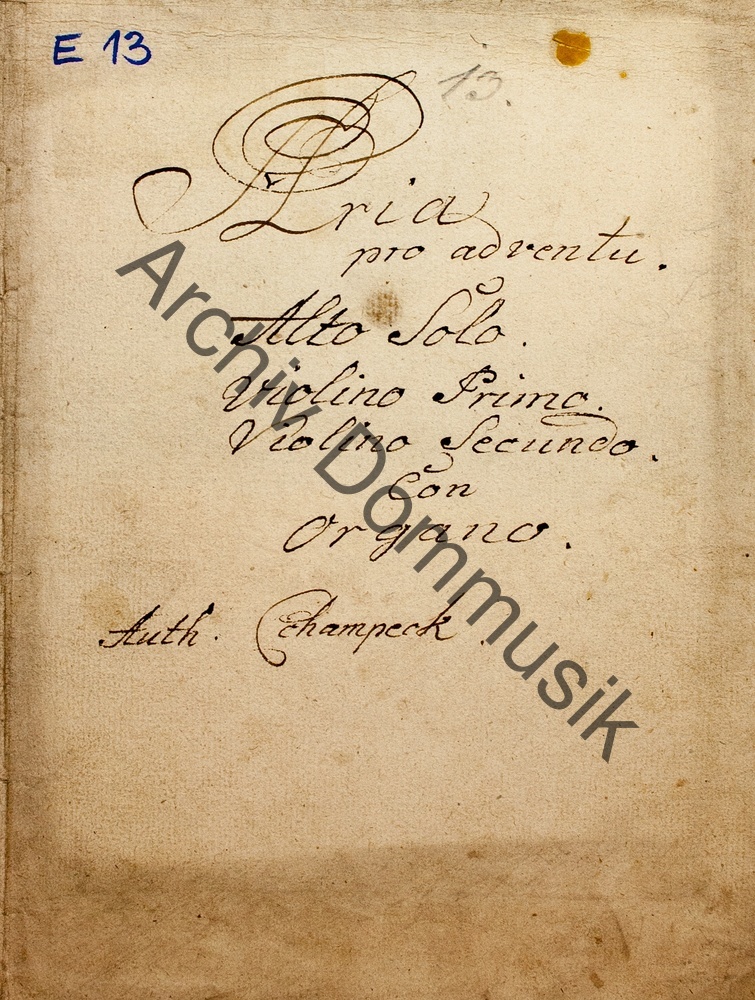 E 13
13.
Aria
pro adventu.
Alto Solo.
Violino Primo.
Violino Secundo.
Con
Organo.
Auth. Cchampeck.
Archiv Dommusik